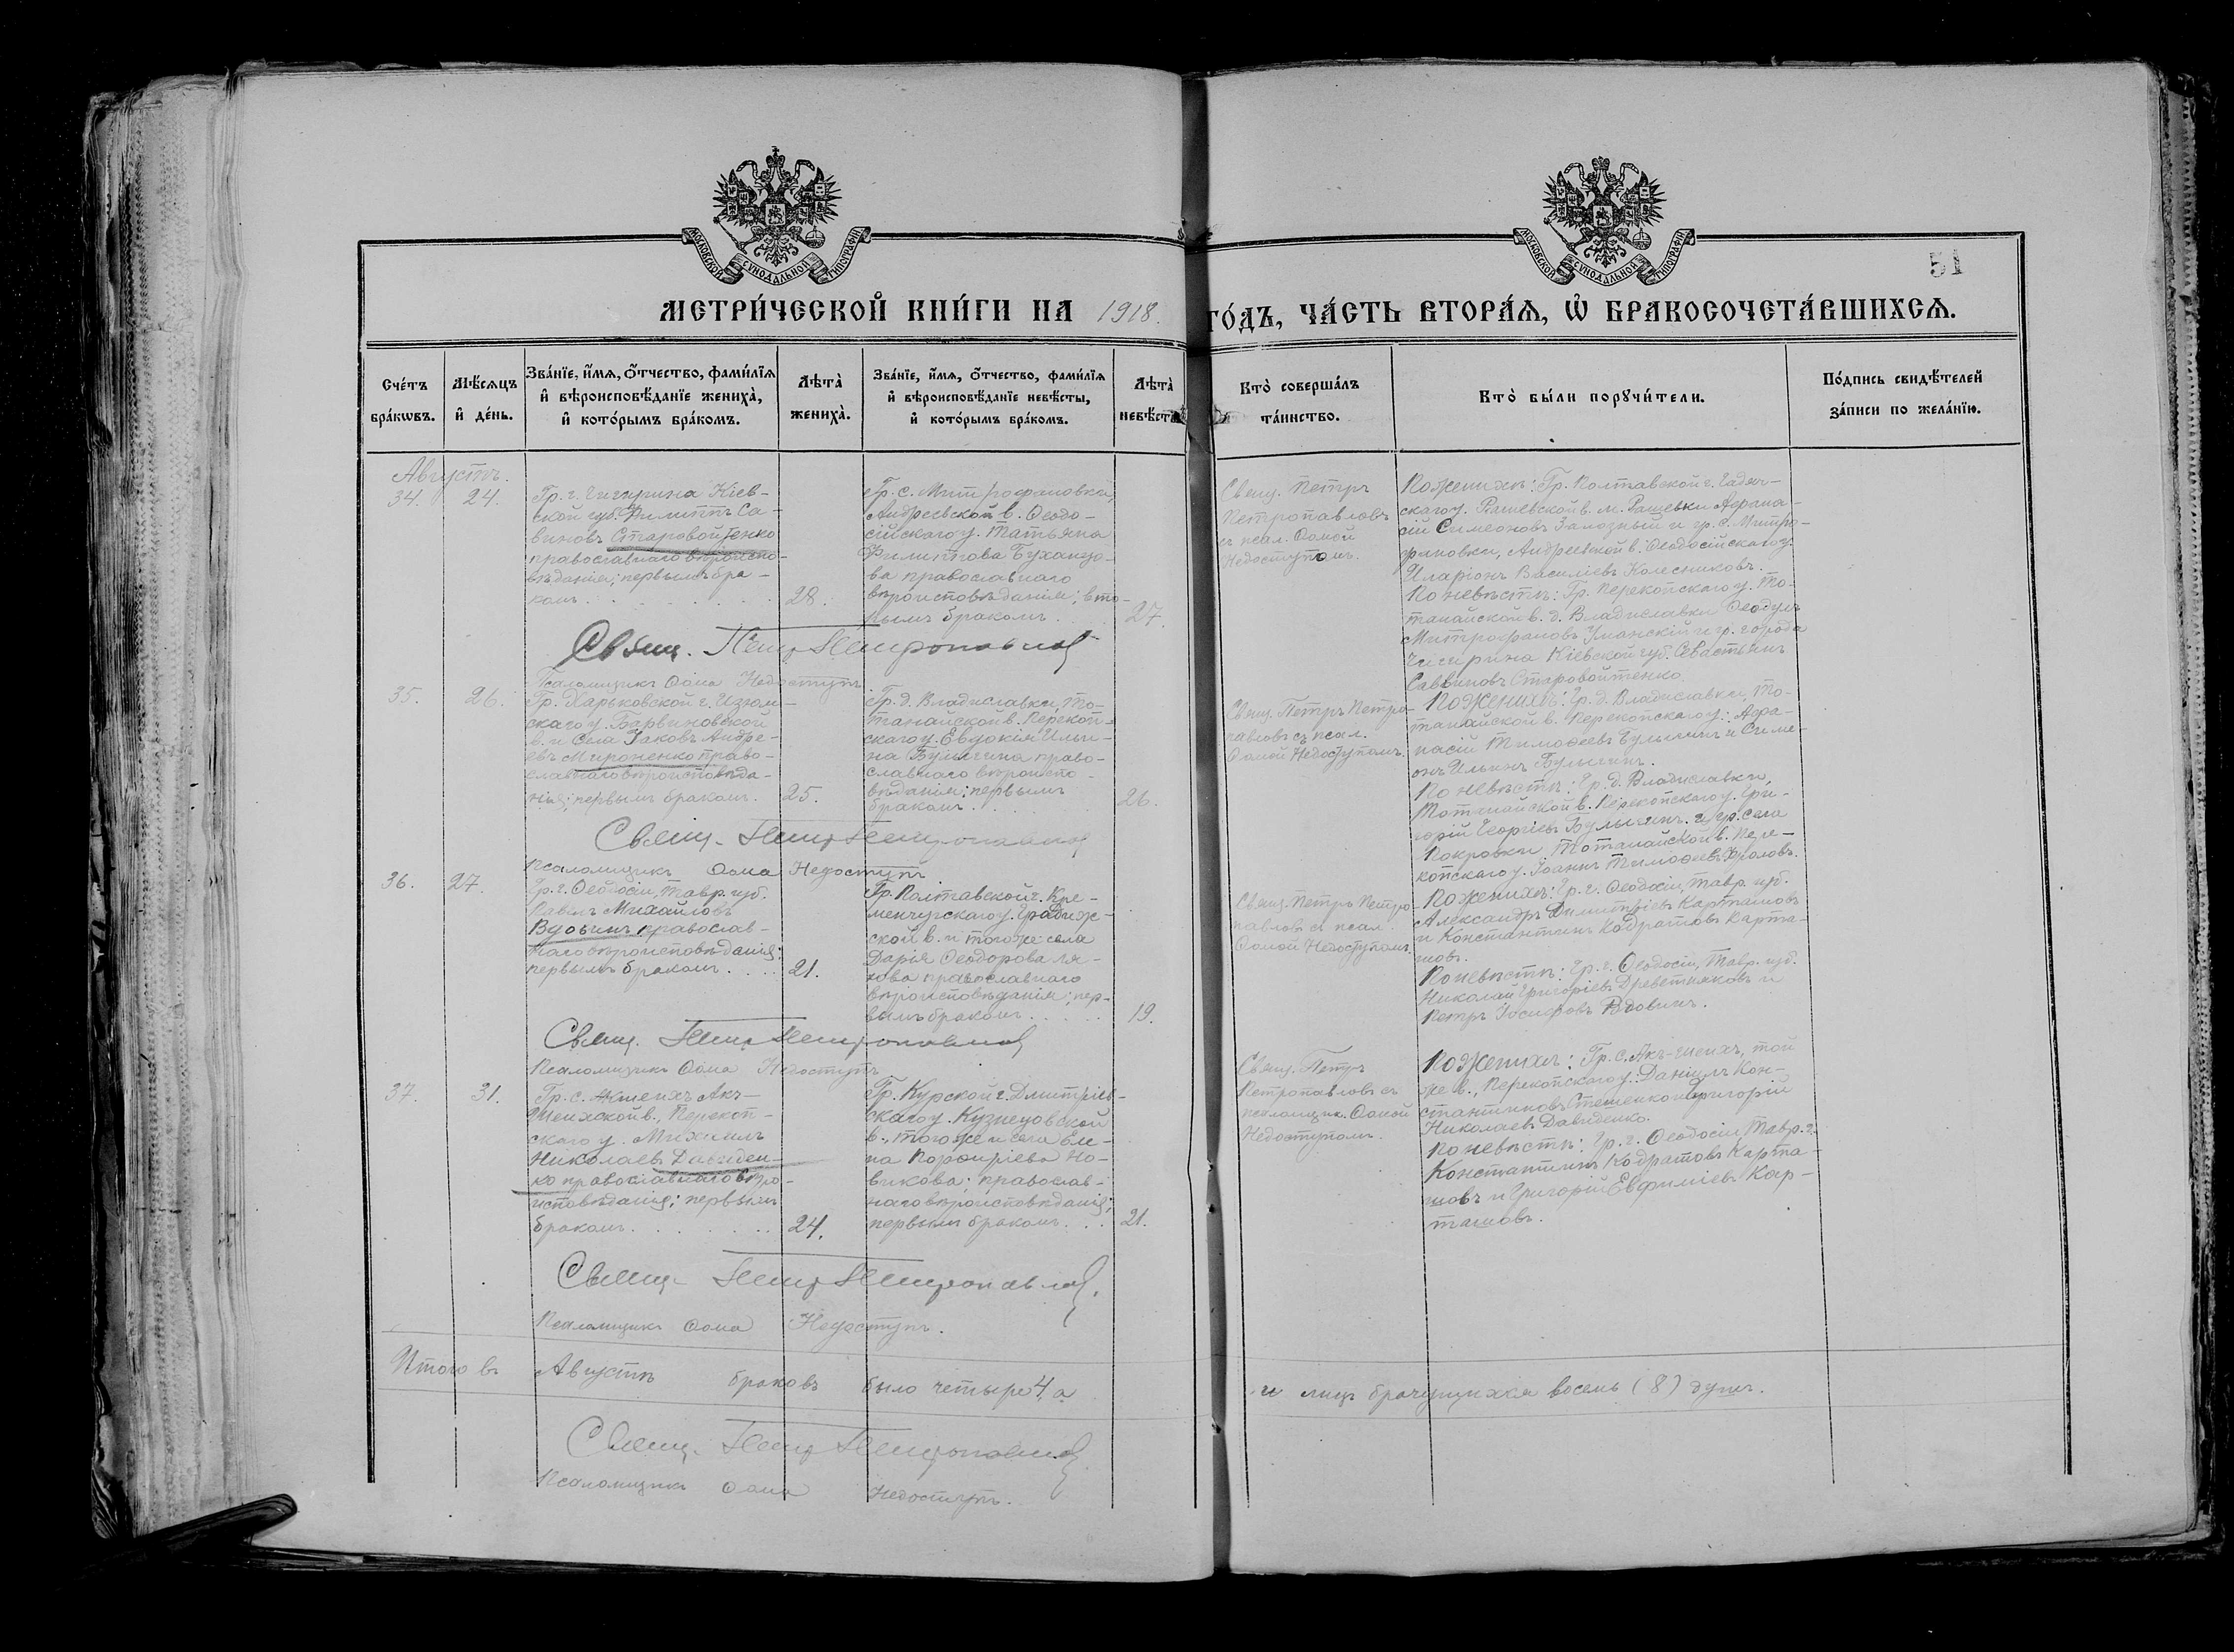 МОСКОВСКОЙ СУНОДАЛЬНОЙ ТИПОГРАФІИ
МОСКОВСКОЙ СУНОДАЛЬНОЙ ТИПОГРАФІИ
51
МЕТРИ́ЧЕСКОЙ КНИ́ГИ НА 1918. ГО́ДЪ, ЧА́СТЬ ВТОРА́Ѧ, Ѽ БРАКОСОЧЕТА́ВШИХСѦ.
Сче́тъ бра́кѡвъ.
Мѣ́сѧцъ и҆ де́нь.
Зва́нїе, и҆́мѧ, ѻ҆́тчество, фами́лїѧ и҆ вѣроисповѣ́данїе жениха̀, и҆ кото́рымъ бра́комъ.
Лѣта̀ жениха̀.
Зва́нїе, и҆́мѧ, ѻ҆́тчество, фами́лїѧ и҆ вѣроисповѣ́данїе невѣ́сты, и҆ кото́рымъ бра́комъ.
Лѣта̀ невѣ́сты
Кто̀ соверша́лъ та́инство.
Кто̀ бы́ли порꙋчи́тели.
По́дпись свидѣ́телей за́писи по жела́нїю.
Августъ.
34. 24.
Гр. г. Чигирина Кіев-
ской губ. Филиппъ Са-
виновъ Старовойтенко
православнаго вѣроиспо-
вѣданія; первымъ бра-
комъ. 28.
Гр. с. Митрофановки,
Андреевской в. Ѳеодо-
сійскаго у. Татьяна
Филиппова Буханцо-
ва православнаго
вѣроисповѣданія; вто-
рымъ бракомъ. 27.
Свящ. Петръ
Петропавловъ
съ псал. Ѳомой
Недоступомъ.
По женихѣ: Гр. Полтавской г. Гадяч-
скаго у. Рашевской в. м. Рашевки Аѳана-
сій Симеоновъ Залозный и гр. с. Митро-
фановки, Андреевской в. Ѳеодосійскаго у.
Иларіонъ Василіевъ Колесниковъ.
По невѣстѣ: Гр. Перекопскаго у. То-
танайской в. д. Владиславки Ѳеодулъ
Митрофановъ Уманскій и гр. города
Чигирина Кіевской губ. Севастьянъ
Саввиновъ Старовойтенко.
Свящ. Петръ Петропавловъ
Псаломщикъ Ѳома Недоступъ.
35. 26.
Гр. Харьковской г. Изюм-
скаго у. Барвиновской
в. и села Іаковъ Андре-
евъ Мироненко право-
славнаго вѣроисповѣда-
нія; первымъ бракомъ. 25.
Гр. д. Владиславки, То-
танайской в. Перекоп-
скаго у. Евдокія Ильи-
на Булыгина право-
славнаго вѣроиспо-
вѣданія; первымъ
бракомъ. 26.
Свящ. Петръ Петро-
павловъ съ псал.
Ѳомой Недоступомъ.
По женихѣ: Гр. д. Владиславки, То-
танайской в. Перекопскаго у.: Аѳа-
насій Тимоѳеевъ Булыгинъ и Симе-
онъ Ильинъ Булыгинъ.
По невѣстѣ: Гр. д. Владиславки,
Тотанайской в. Перекопскаго у. Гри-
горій Георгіевъ Булыгинъ и гр. села
Покровки, Тотанайской в. Пере-
копскаго у. Іоаннъ Тимоѳеевъ Фроловъ.
Свящ. Петръ Петропавловъ
Псаломщикъ Ѳома Недоступъ
36. 27.
Гр. г. Ѳеодосіи, Тавр. губ.
Павелъ Михайловъ
Вдовинъ православ-
наго вѣроисповѣданія;
первымъ бракомъ. 21.
Гр. Полтавской г. Кре-
менчугскаго у. Градиж-
ской в. и того же села
Дарія Ѳеодорова Ля-
хова православнаго
вѣроисповѣданія; пер-
вымъ бракомъ. 19.
Свящ. Петръ Петро-
павловъ съ псал.
Ѳомой Недоступомъ
По женихѣ: Гр. г. Ѳеодосіи, Тавр. губ.
Александръ Димитріевъ Карташовъ
и Константинъ Кодратовъ Карта-
шовъ.
По невѣстѣ: Гр. г. Ѳеодосіи, Тавр. губ.
Николай Григоріевъ Древетняковъ и
Петръ Іосифовъ Вдовинъ.
Свящ. Петръ Петропавловъ
Псаломщикъ Ѳома Недоступъ
37. 31.
Гр. с. Акшеихъ Акъ-
Шеихской в., Перекоп-
скаго у. Михаилъ
Николаевъ Давиден-
ко православнаго вѣро-
исповѣданія; первымъ
бракомъ. 24.
Гр. Курской г. Дмитріев-
скаго у. Кузнецовской
в., того же и села Еле-
на Порфиріева Но-
викова; православ-
наго вѣроисповѣданія;
первымъ бракомъ. 21.
Свящ. Петръ
Петропавловъ съ
псаломщик. Ѳомой
Недоступомъ.
По женихѣ: Гр. с. Акъ-Шеихъ, той
же в., Перекопскаго у.: Даніилъ Кон-
стантиновъ Стешенко и Григорій
Николаевъ Давиденко.
По невѣстѣ: Гр. г. Ѳеодосіи, Тавр. г.
Константинъ Кодратовъ Карта-
шовъ и Григорій Евфиміевъ Кар-
ташовъ.
Свящ. Петръ Петропавловъ.
Псаломщикъ Ѳома Недоступъ.
Итого въ Августѣ браковъ было четыре 4, а и лицъ брачущихся восемь (8) душъ.
Свящ. Петръ Петропавловъ
Псаломщикъ Ѳома Недоступъ.